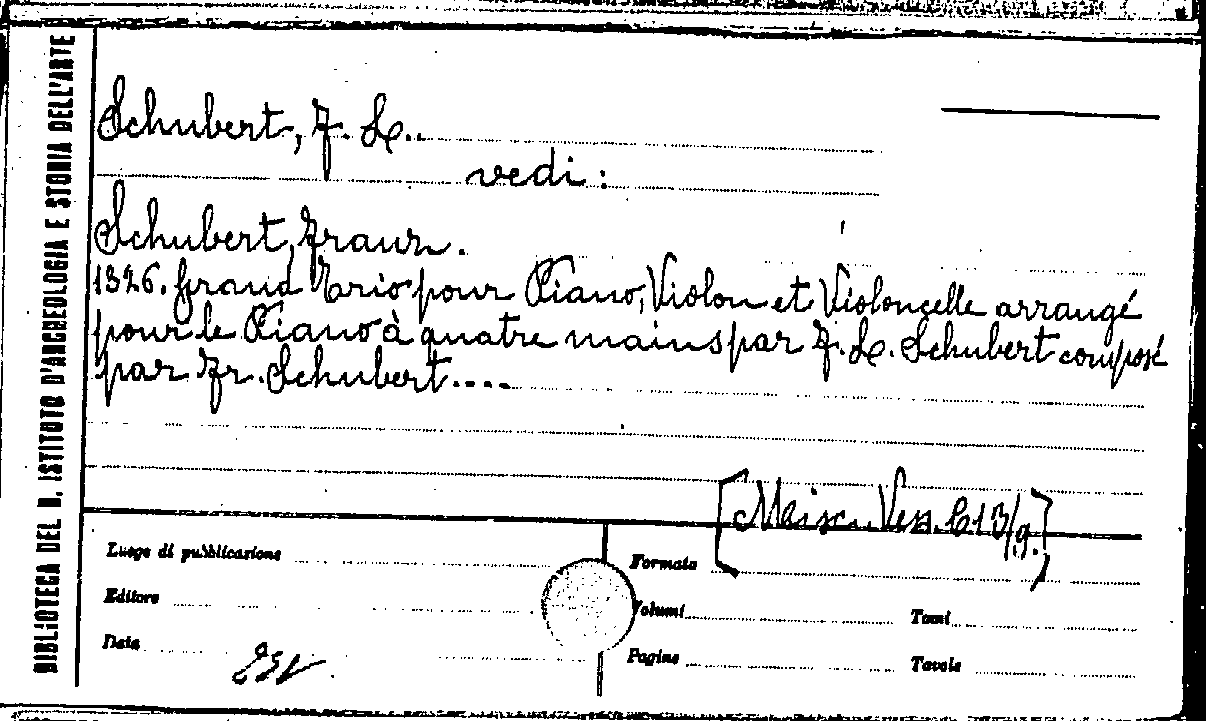 BIBLIOTECA DEL R. ISTITUTO D'ARCHEOLOGIA E STORIA DELL'ARTE
Schubert, F. L..
vedi:
Schubert, Franz.
1326. Grand Trio pour Piano, Violon et Violoncelle arrangé
pour le Piano à quatre mains par F. L. Schubert composé
par Fr. Schubert....
[Misc. Vess. C 13/g.]
Luogo di pubblicazione
Formato
Editore
Volumi
Tomi
Data
Pagine
Tavole